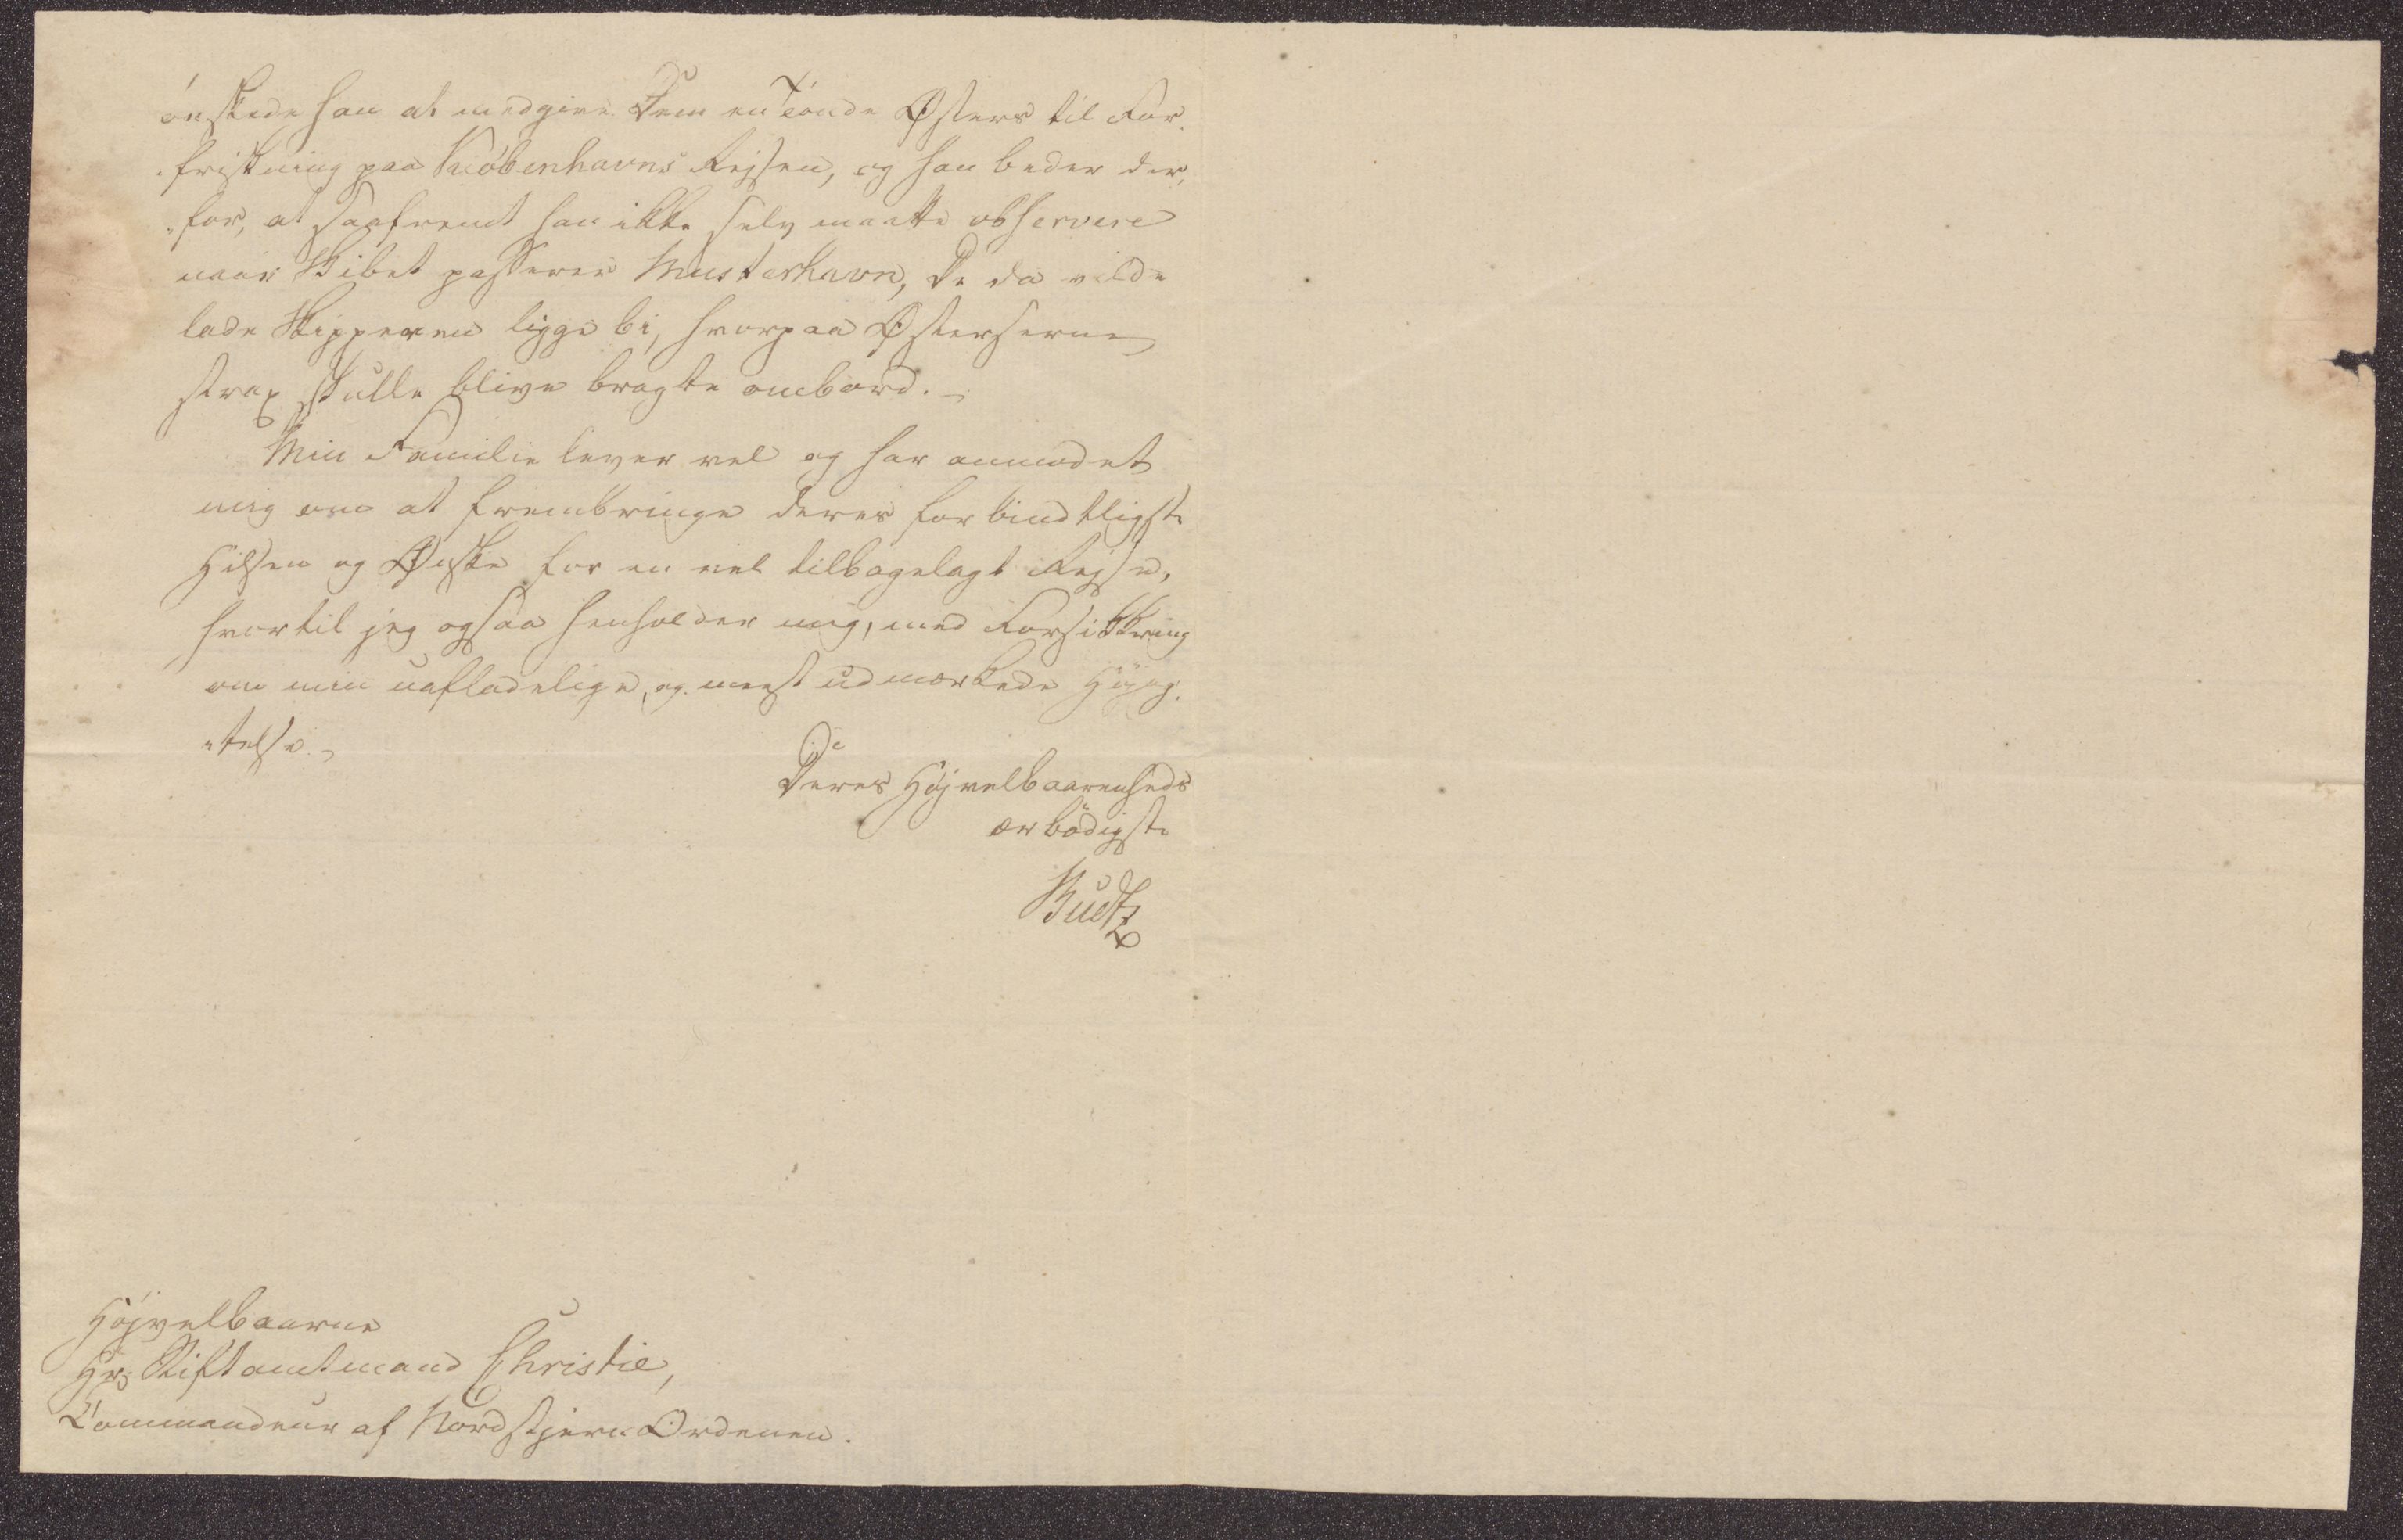 önskede han at medgive Dem en Tönde Østers til For-
-friskning paa Kiöbenhavns Rejsen, og han beder der,
-for, at saafremt han ikke selv maatte observere
naar Skibet passerer Musterhavn, De da vilde
lade Skipperen ligge bi, hvorpaa Østerserne
strax skulle blive bragte ombord.-
Min Familie lever vel og har anmodet
mig om at frembringe deres forbindtligste
Hilsen og Ønske for en vel tilbagelagt Rejse,
hvortil jeg ogsaa henholder mig, med Forsikkring
om min uafladelige, og meest udmærkede Højag-
-telse.-
Deres Højvelbaarenheds
ærbödigste
Budtz
Højvelbaarne
Hr. Stiftamtmand Christie,
Commandeur af Nordstjerne Ordenen.